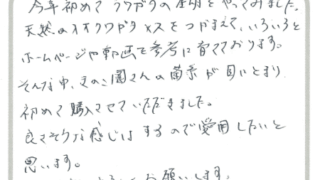 今年初めてクワガタの産卵をやってみました。
天然のオオクワガタメスをつかまえて、いろいろと
ホームページや動画を参考に育てております。
そんな中、きのこ園さんの菌糸が目にとまり
初めて購入させていただきました。
良さそうな感じはするので愛用したいと
思います。
お願いします。